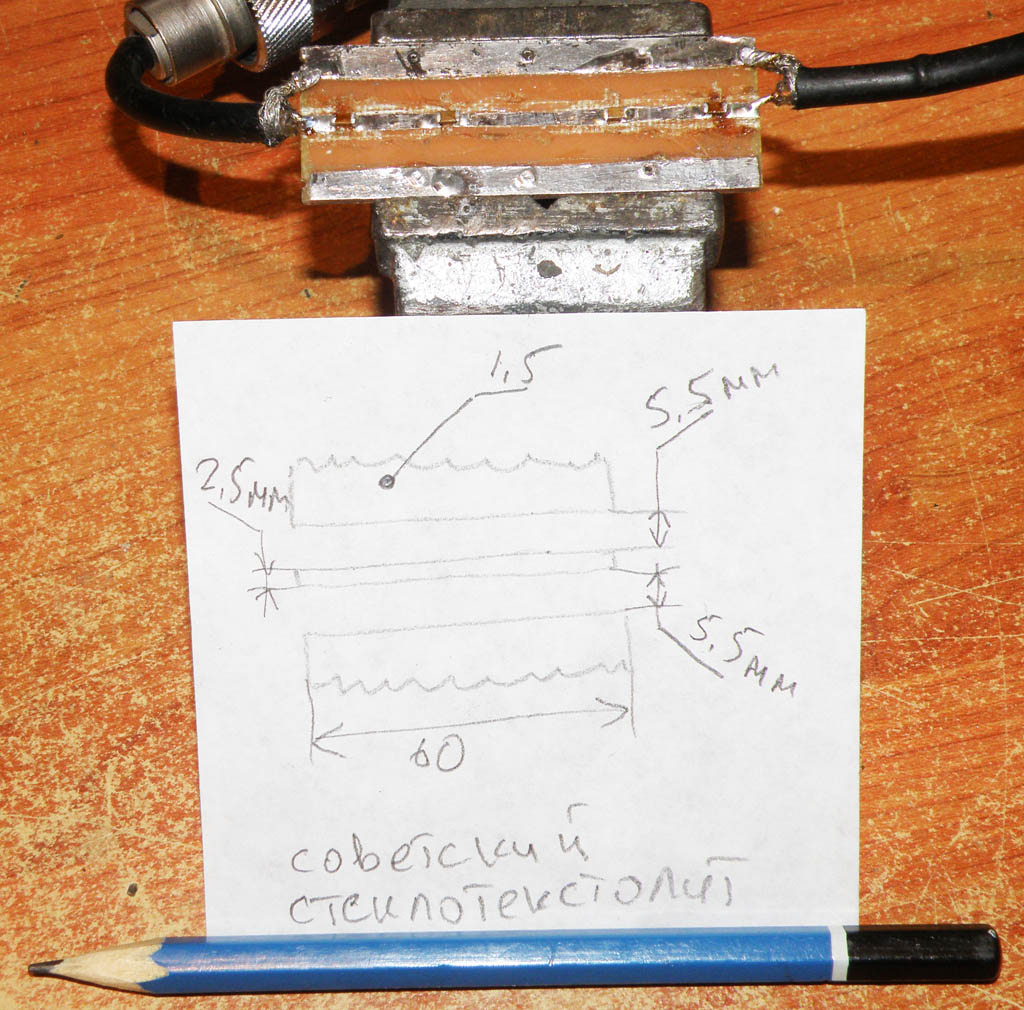 1,5
5,5мм
2,5мм
5,5мм
60
советский
стеклотекстолит